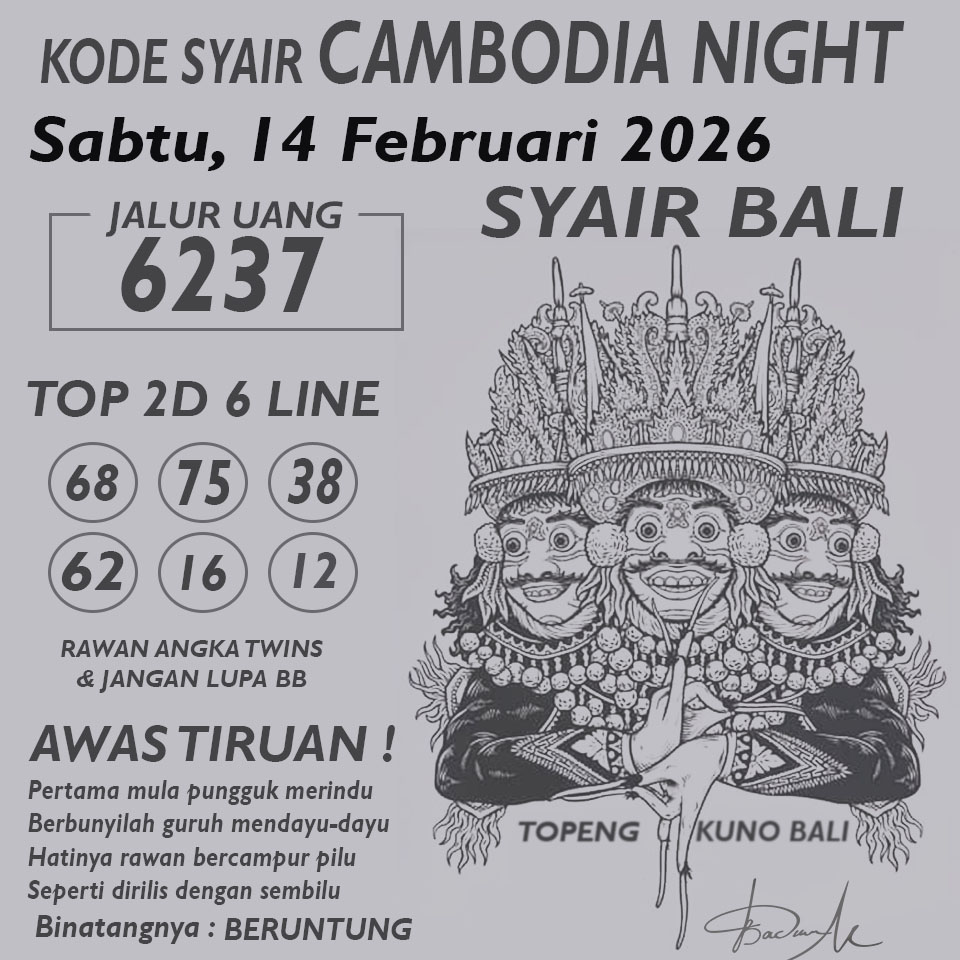 KODE SYAIR CAMBODIA NIGHT
Sabtu, 14 Februari 2026
SYAIR BALI
JALUR UANG
6237
TOP 2D 6 LINE
68 75 38
62 16 12
RAWAN ANGKA TWINS
& JANGAN LUPA BB
AWAS TIRUAN !
Pertama mula pungguk merindu
Berbunyilah guruh mendayu-dayu
Hatinya rawan bercampur pilu
Seperti dirilis dengan sembilu
Binatangnya : BERUNTUNG
TOPENG KUNO BALI